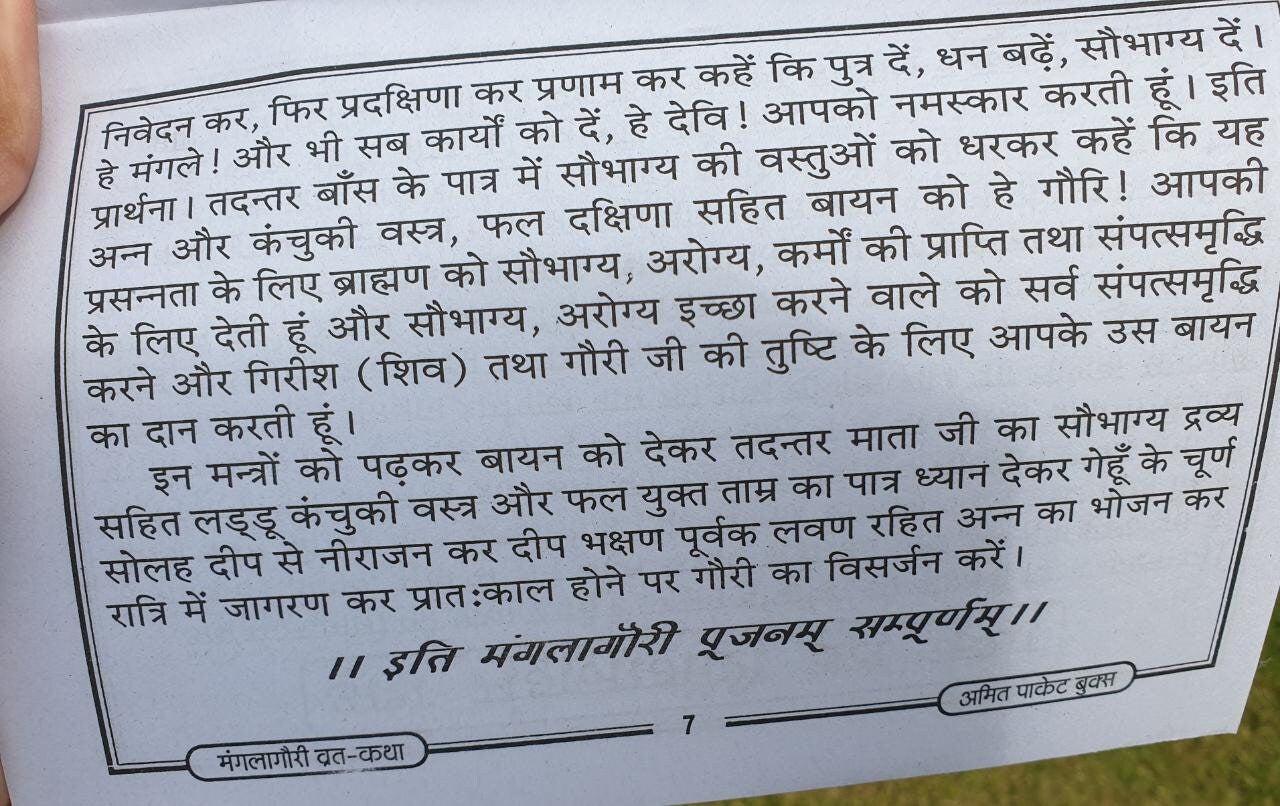 निवेदन कर, फिर प्रदक्षिणा कर प्रणाम कर कहें कि पुत्र दें, धन बढ़ें, सौभाग्य दें।
हे मंगले! और भी सब कार्यों को दें, हे देवि! आपको नमस्कार करती हूं। इति
प्रार्थना। तदन्तर बाँस के पात्र में सौभाग्य की वस्तुओं को धरकर कहें कि यह
अन्न और कंचुकी वस्त्र, फल दक्षिणा सहित बायन को हे गौरि! आपकी
प्रसन्नता के लिए ब्राह्मण को सौभाग्य, अरोग्य, कर्मों की प्राप्ति तथा संपत्समृद्धि
के लिए देती हूं और सौभाग्य, अरोग्य इच्छा करने वाले को सर्व संपत्समृद्धि
करने और गिरीश (शिव) तथा गौरी जी की तुष्टि के लिए आपके उस बायन
का दान करती हूं।
इन मन्त्रों को पढ़कर बायन को देकर तदन्तर माता जी का सौभाग्य द्रव्य
सहित लड्डू कंचुकी वस्त्र और फल युक्त ताम्र का पात्र ध्यान देकर गेहूँ के चूर्ण
सोलह दीप से नीराजन कर दीप भक्षण पूर्वक लवण रहित अन्न का भोजन कर
रात्रि में जागरण कर प्रात:काल होने पर गौरी का विसर्जन करें।
।। इति मंगलागौरी पूजनम् सम्पूर्णम्।।
मंगलागौरी व्रत-कथा
7
अमित पाकेट बुक्स